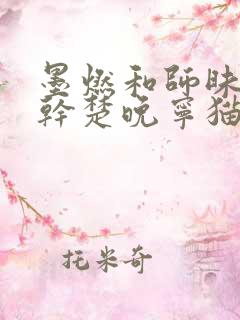 墨燃和師昧
幹楚晚寧猫
托米奇